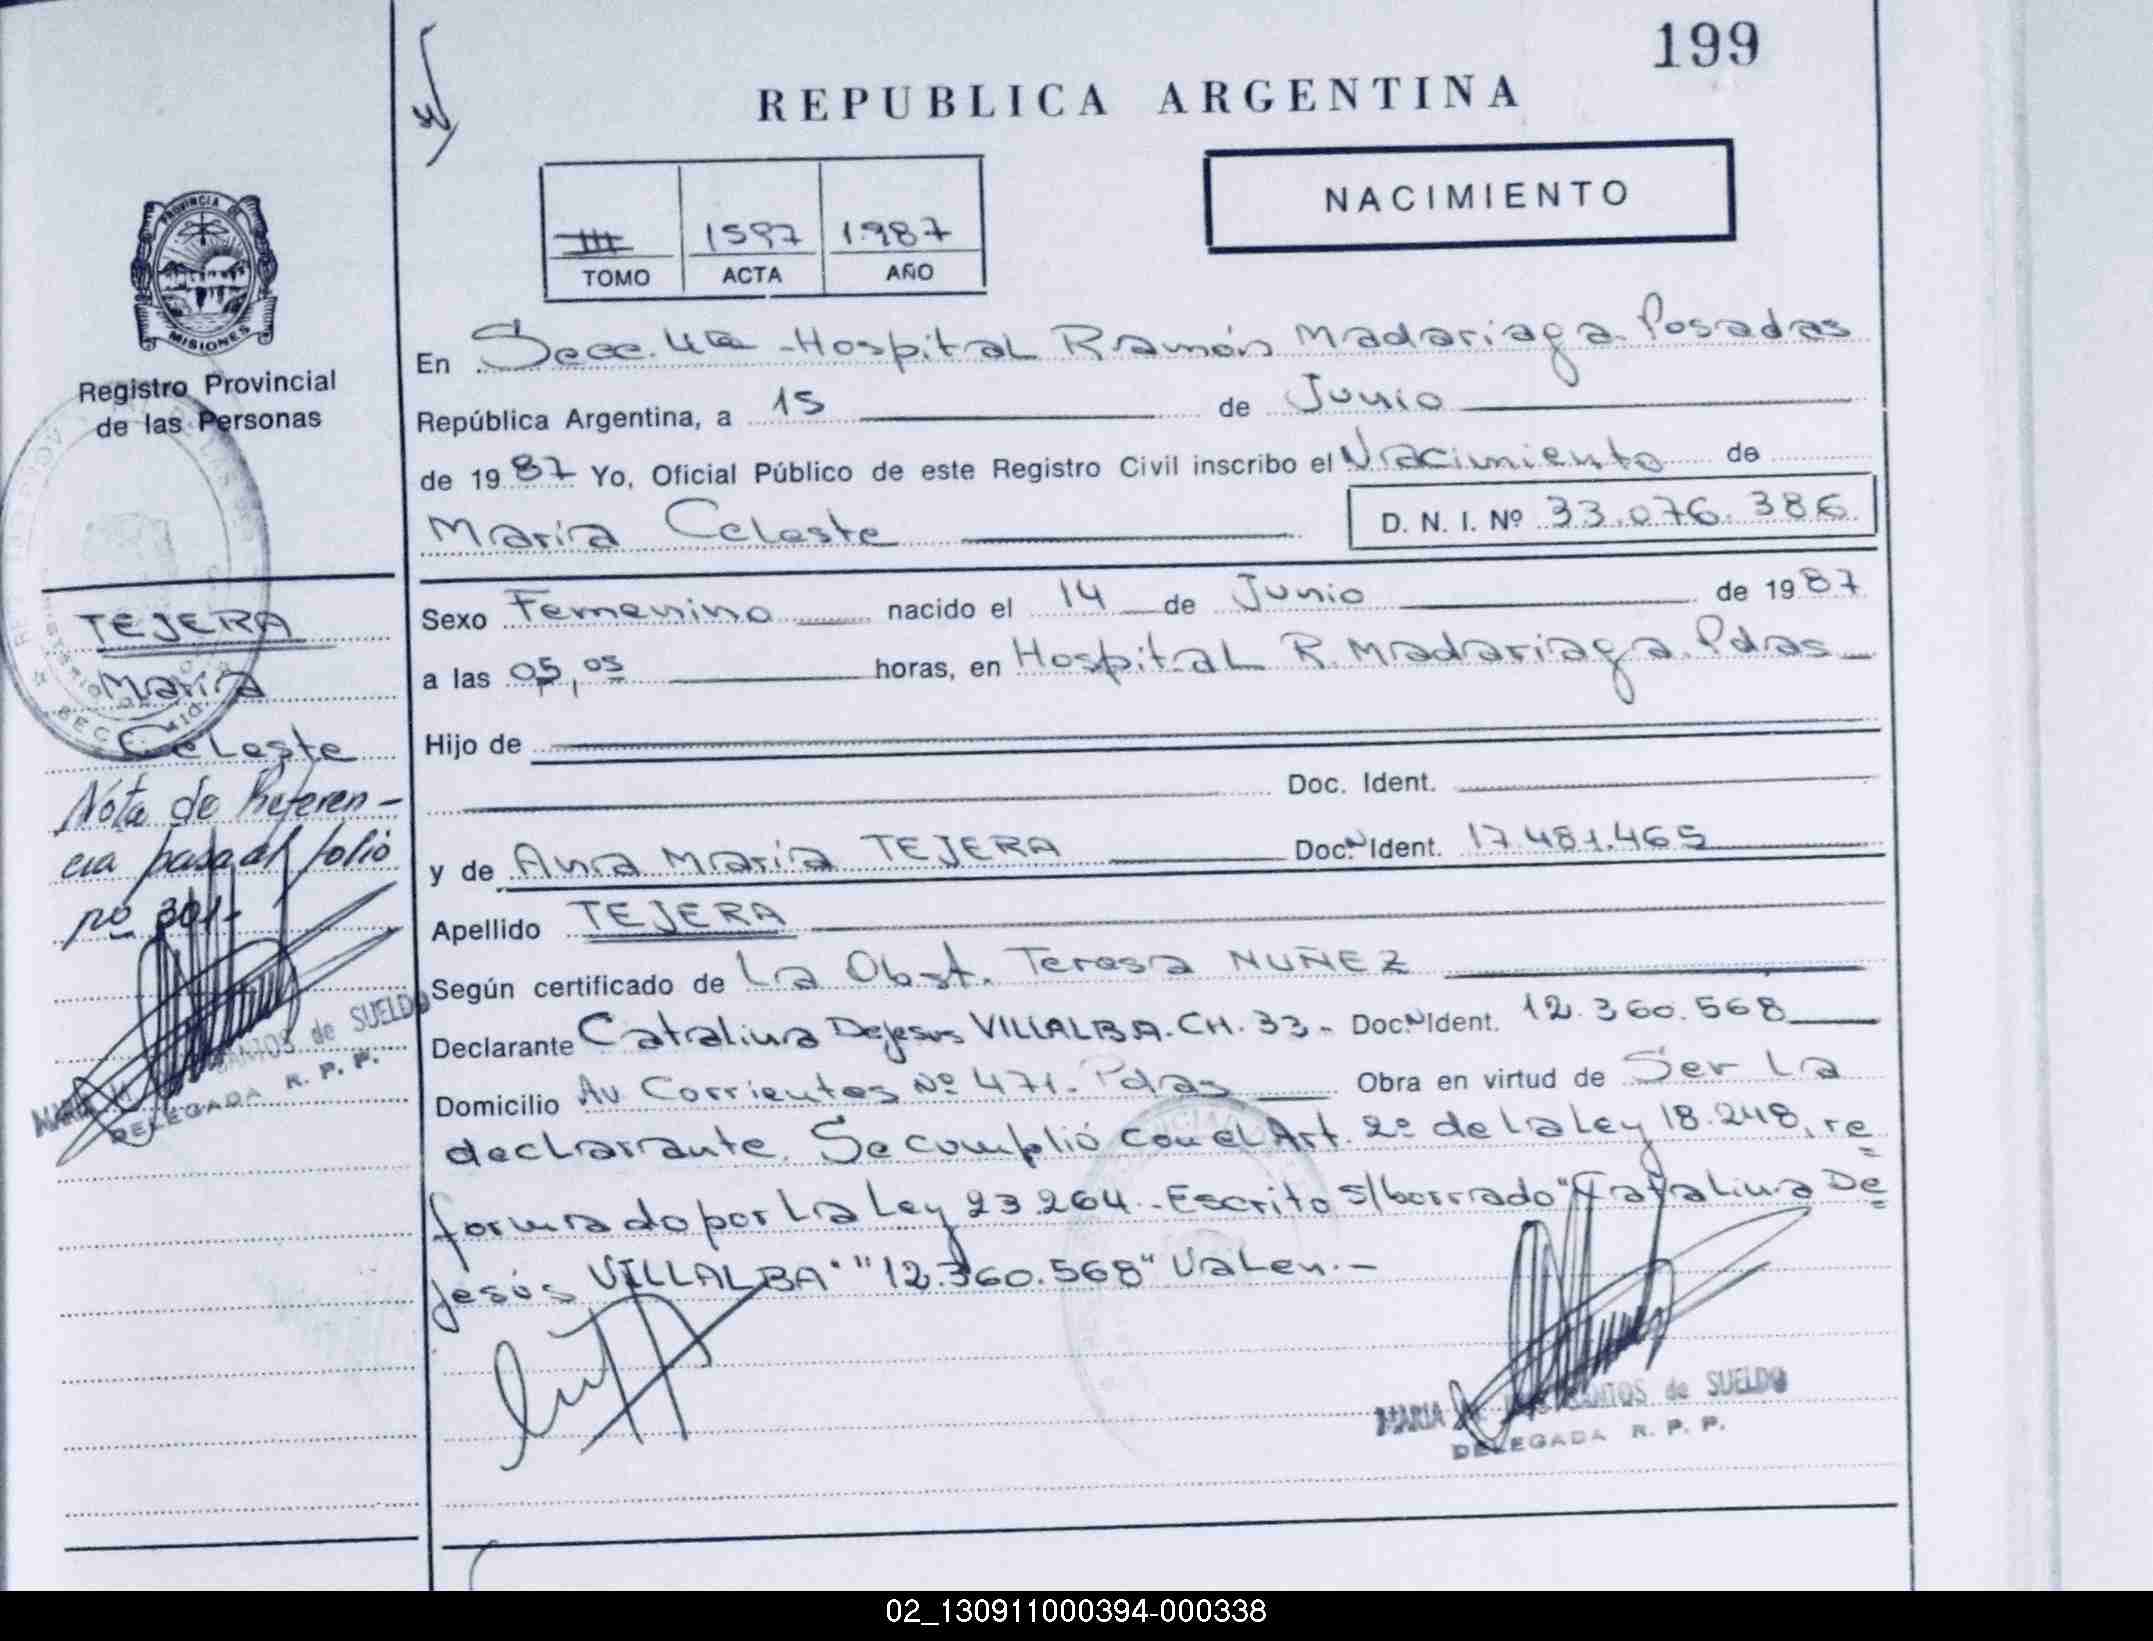 199
REPUBLICA ARGENTINA
NACIMIENTO
III 1597 1.987
TOMO ACTA AÑO
PROVINCIA DE
MISIONES
Registro Provincial
de las Personas
En Secc. 4ta - Hospital Ramón Madariaga. Posadas
República Argentina, a 15 de Junio
de 1987 Yo, Oficial Público de este Registro Civil inscribo el Nacimiento de
María Celeste
D. N. I. Nº 33.076.386
TEJERA
María
Celeste
Nota de Referen-
cia pasa al folio
nº 301-
MARIA SANTOS de SUELDO
DELEGADA R. P. P.
Sexo Femenino nacido el 14 de Junio de 1987
a las 05,05 horas, en Hospital R. Madariaga. Pdas
Hijo de
Doc. Ident.
y de Ana María TEJERA Doc. N Ident. 17.481.465
Apellido TEJERA
Según certificado de La Obst. Teresa NUÑEZ
Declarante Catalina Dejesus VILLALBA. CH. 33- Doc. N Ident. 12.360.568
Domicilio Av Corrientes Nº 471. Pdas Obra en virtud de Ser La
declarante. Se cumplió con el Art. 2º de La Ley 18.248, re
formado por La Ley 23.264.- Escrito s/borrado "Catalina De
jesús VILLALBA" "12.360.568" Valen.-
MARIA SANTOS de SUELDO
DELEGADA R. P. P.
02_130911000394-000338